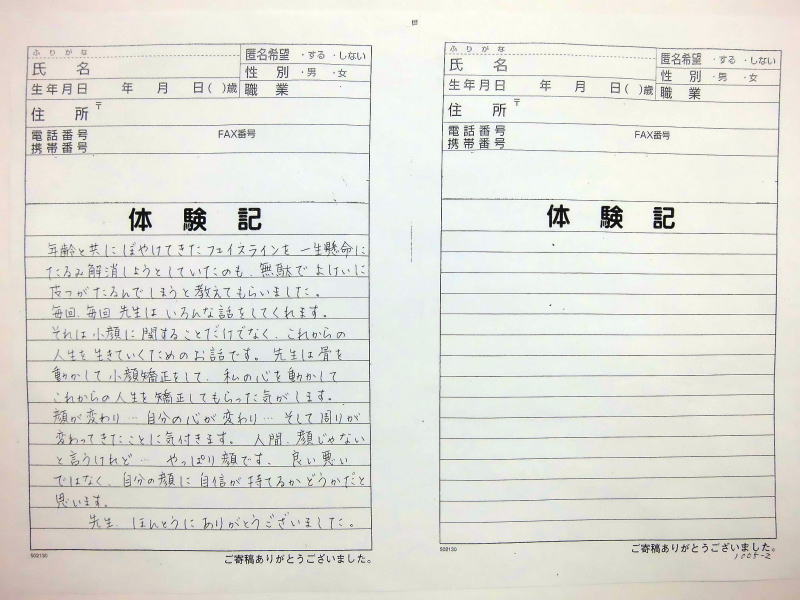 ふりがな
氏 名
匿名希望 ・する ・しない
性 別 ・男 ・女
生年月日 年 月 日( )歳
職 業
住 所 〒
電話番号 FAX番号
携帯番号
体 験 記
年齢と共にぼやけてきたフェイスラインを 一生懸命に
たるみ解消しようとしていたのも、無駄でよけいに
皮フがたるんでしまうと教えてもらいました。
毎回、毎回 先生は いろんな話をしてくれます。
それは小顔に関することだけでなく、これからの
人生を生きていくためのお話です。先生は骨を
動かして小顔矯正をして、私の心を動かして
これからの人生を矯正してもらった気がします。
顔が変わり… 自分の心が変わり… そして周りが
変わってきたことに気付きます。人間、顔じゃない
と言うけれど… やっぱり顔です。良い悪い
ではなく、自分の顔に自信が持てるかどうかだと
思います。
先生、ほんとうにありがとうございました。
502130
ご寄稿ありがとうございました。
ふりがな
氏 名
匿名希望 ・する ・しない
性 別 ・男 ・女
生年月日 年 月 日( )歳
職 業
住 所 〒
電話番号 FAX番号
携帯番号
体 験 記
502130
ご寄稿ありがとうございました。
1005-2